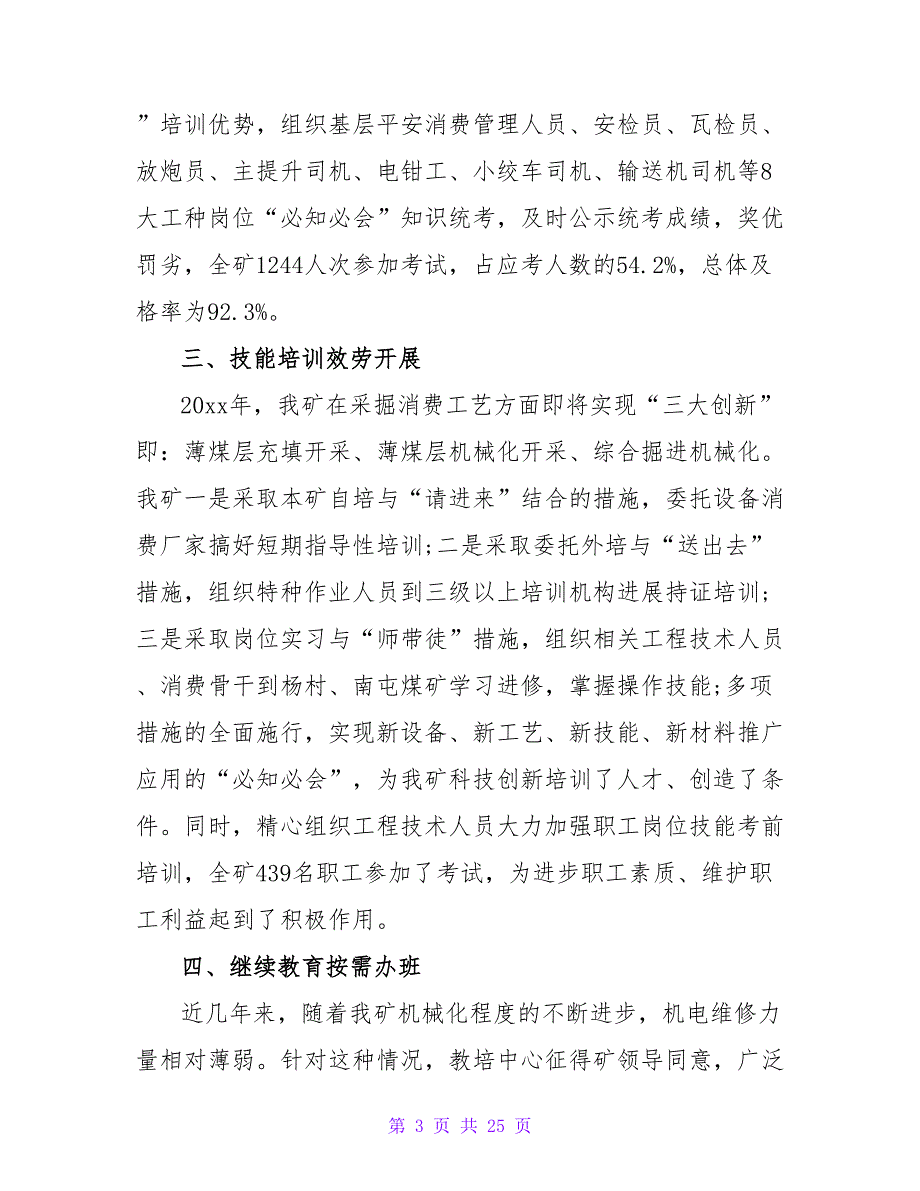 ”培训优势，组织基层平安消费管理人员、安检员、瓦检员、
放炮员、主提升司机、电钳工、小绞车司机、输送机司机等8
大工种岗位“必知必会”知识统考，及时公示统考成绩，奖优
罚劣，全矿1244人次参加考试，占应考人数的54.2%，总体及
格率为92.3%。
三、技能培训效劳开展
20xx年，我矿在采掘消费工艺方面即将实现“三大创新”
即：薄煤层充填开采、薄煤层机械化开采、综合掘进机械化。
我矿一是采取本矿自培与“请进来”结合的措施，委托设备消
费厂家搞好短期指导性培训;二是采取委托外培与“送出去”
措施，组织特种作业人员到三级以上培训机构进展持证培训;
三是采取岗位实习与“师带徒”措施，组织相关工程技术人员
、消费骨干到杨村、南屯煤矿学习进修，掌握操作技能;多项
措施的全面施行，实现新设备、新工艺、新技能、新材料推广
应用的“必知必会”，为我矿科技创新培训了人才、创造了条
件。同时，精心组织工程技术人员大力加强职工岗位技能考前
培训，全矿439名职工参加了考试，为进步职工素质、维护职
工利益起到了积极作用。
四、继续教育按需办班
近几年来，随着我矿机械化程度的不断进步，机电维修力
量相对薄弱。针对这种情况，教培中心征得矿领导同意，广泛
第 3 页 共 25 页